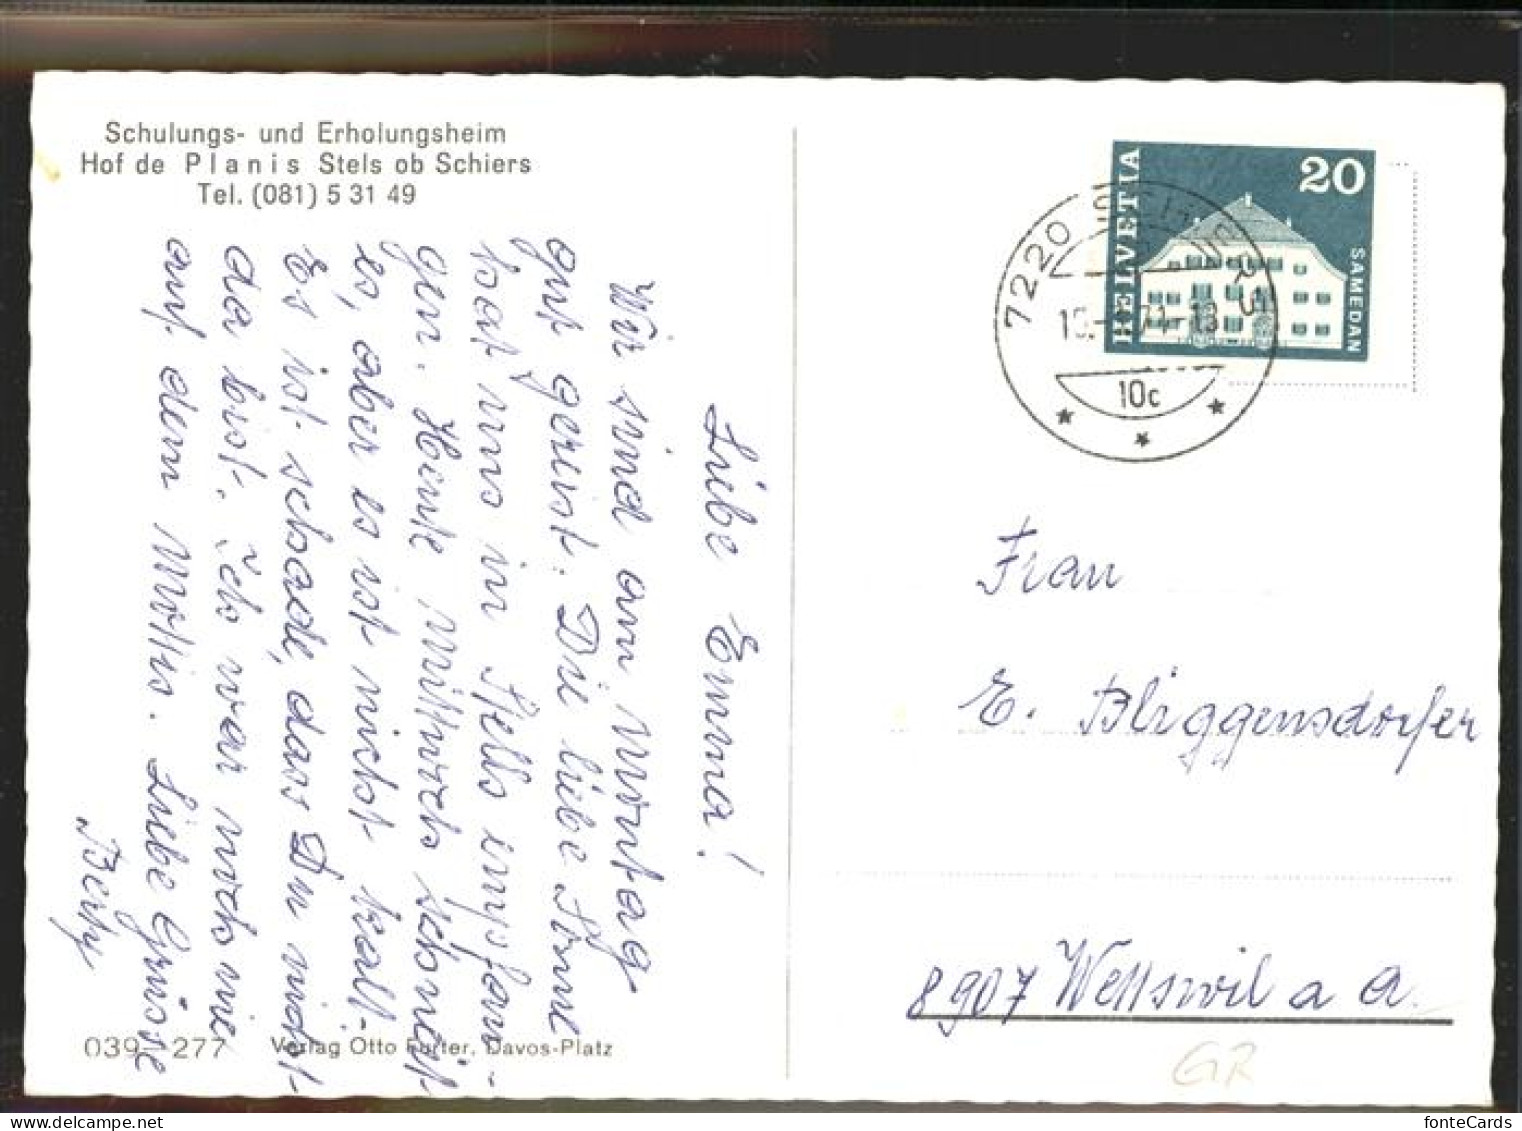 Schulungs- und Erholungsheim
Hof de Planis Stels ob Schiers
Tel. (081) 5 31 49
Liebe Emma!
Wir sind am Montag
gut gereist. Die liebe Sonne
hat uns in Stels empfan-
gen. Heute mittwoch schneit
es, aber es ist nicht kalt.
Es ist schade, dass Du nicht
da bist. Ich war noch nie
auf dem Mottis. Liebe Grüsse
Berty
039-277 Verlag Otto Furter, Davos-Platz
HELVETIA
20
SAMEDAN
7220 SCHIERS
71-18
10c
Frau
E. Bliggensdorfer
8907 Wettswil a A.
GR
fonteCards